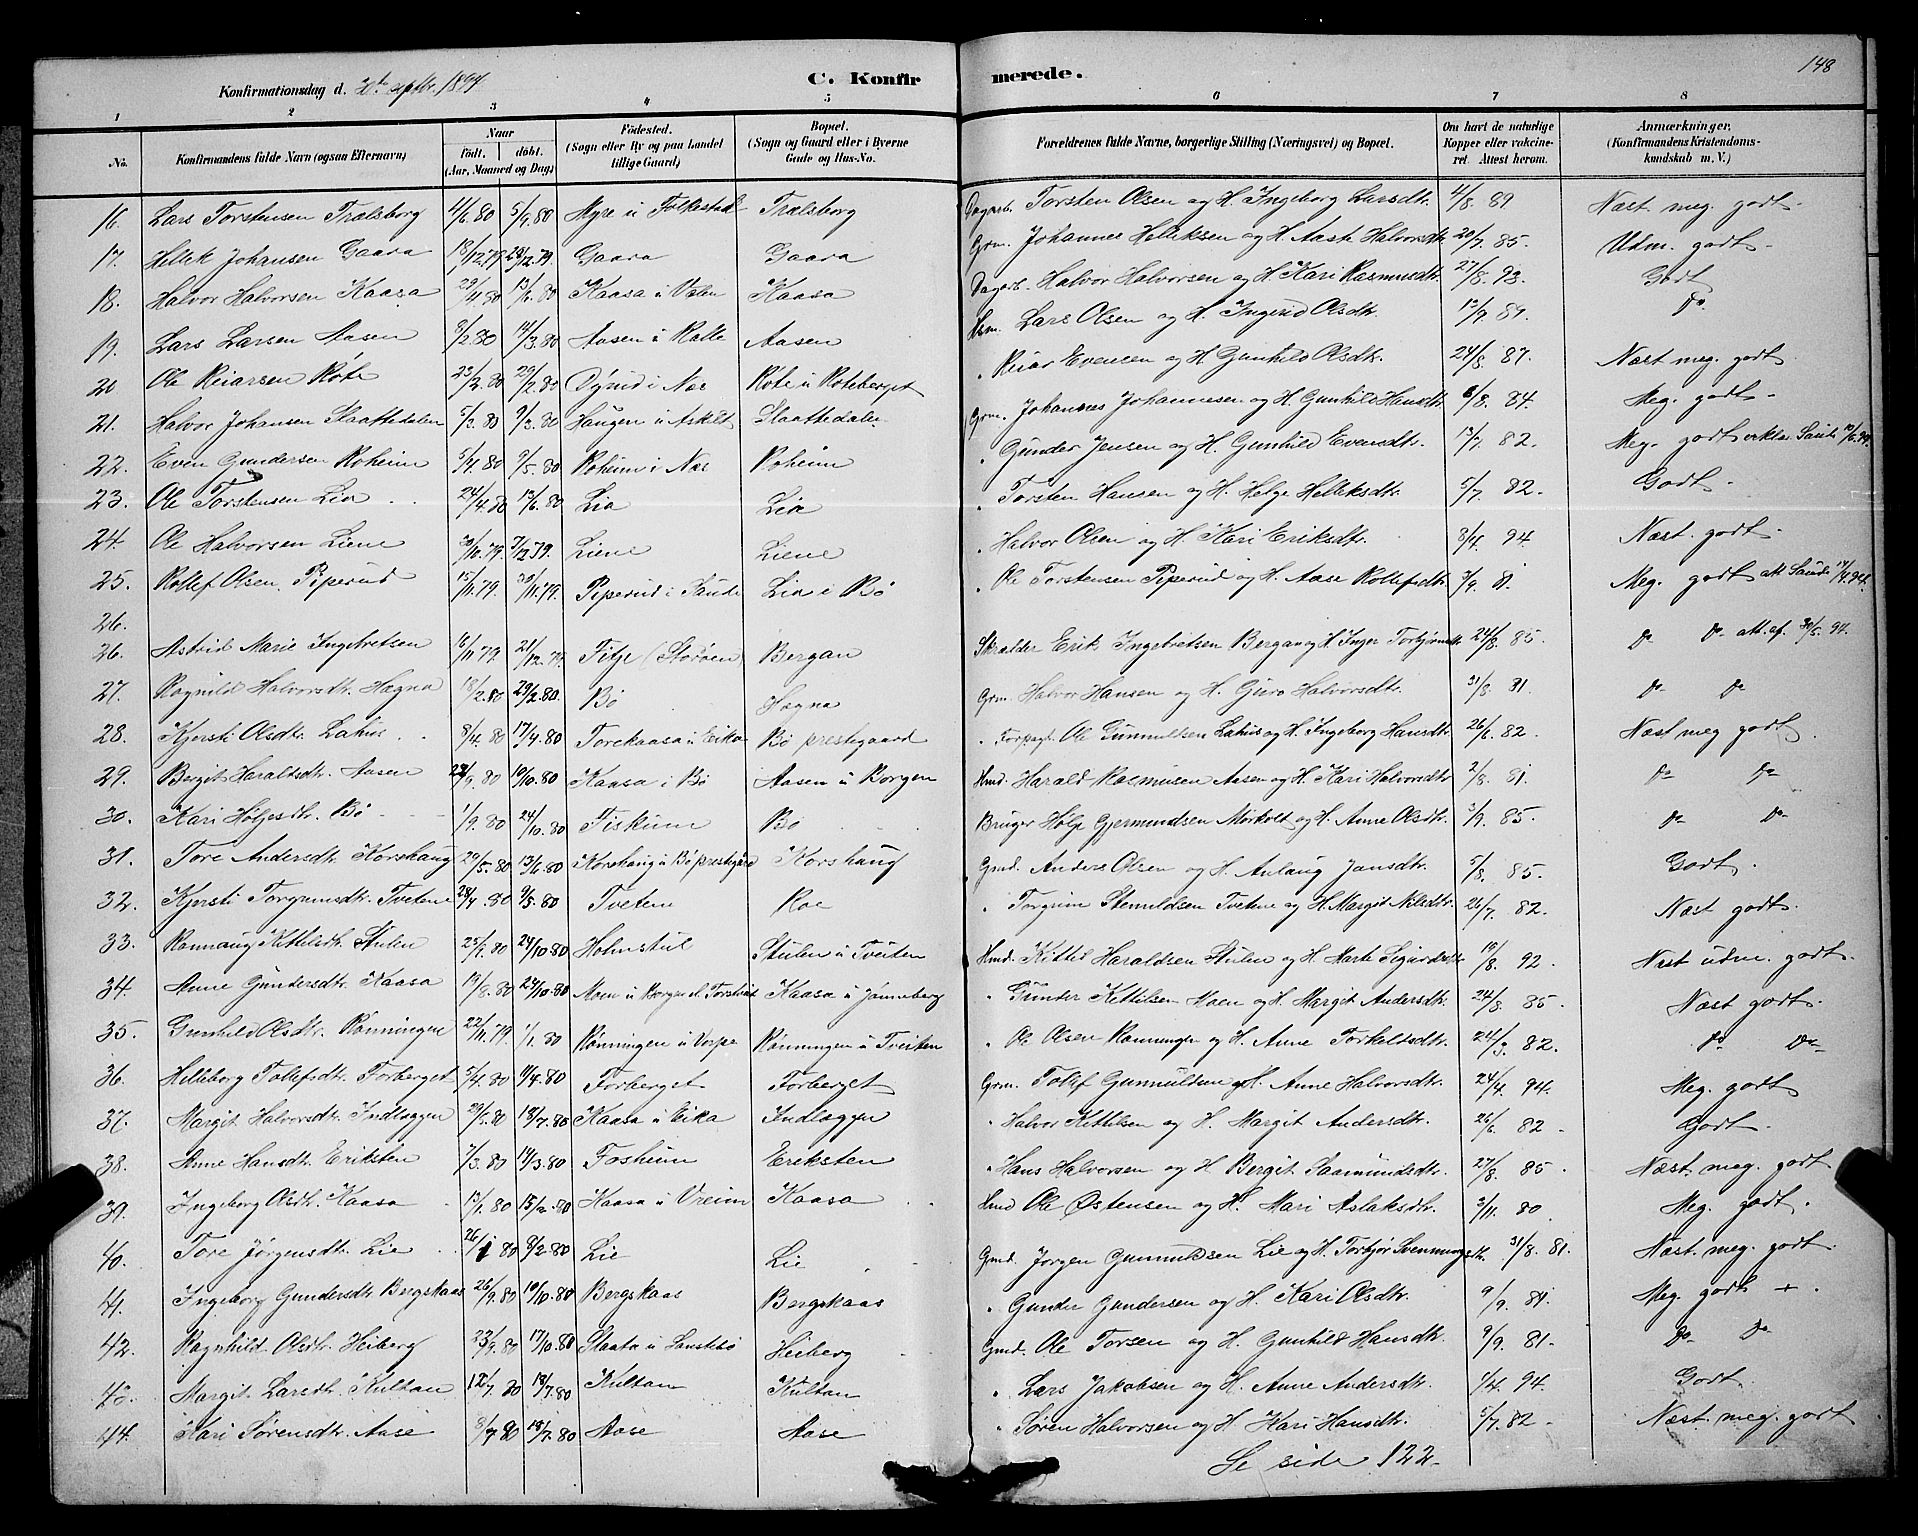 148
Konfirmationsdag d. septbr. 1894.
C. Konfirmerede.
1 2 3 4 5 6 7 8
No. Konfirmandens fulde Navn (ogsaa Efternavn) Naar født, døbt. (Aar, Maaned og Dag) Fødested. (Sogn eller By og paa Landet tillige Gaard) Bopæl. (Sogn og Gaard eller i Byerne Gade og Hus-No. Forældrenes fulde Navne, borgerlige Stilling (Næringsvei) og Bopæl. Om havt de naturlige Kopper eller vakcineret. Attest herom. Anmærkninger. (Konfirmandens Kristendomskundskab m. V.)
16. Lars Torstensen Trælsborg 4/6 80 5/9. 80 Myre u Folkestad Trælsborg Dagarb. Torsten Olsen og H. Ingeborg Larsdtr. 4/8. 89 Næst. meg. godt.
17. Hellek Johansen Gaara 18/12.79 29/12.79 Gaara Gaara Grm. Johannes Helleksen og H. Aaste Halvorsdtr. 20/7. 85. Udm. godt.
18. Halvor Halvorsen Kaasa 29/4.80 13/6. 80 Kaasa u Valen Kaasa Dagarb. Halvor Halvorsen og H. Kari Rasmusdtr. 27/8. 93. Godt
19. Lars Larsen Aasen 8/2.80 14/3.80 Aasen u Kolle Aasen Hsm. Lars Olsen og H. Ingerid Olsdtr. 13/9. 81. Do
20. Ole Reiarsen Røte 23/2.80 29/2.80 i Nes Røte u Roteberget " Reiar Evensen og H. Gunhild Olsdtr. 24/8. 87. Næst meg. godt
21. Halvor Johansen Slaattedalen 5/2. 80 9/3. 80 Haugen u Askilt Slaattedalen Grm. Johannes Johannesen og H. Gunhild Hansdtr. 6/8. 84. Meg. godt.
22. Even Gundersen Roheim 5/4. 80 9/5. 80 Roheim i Nes Roheim " Gunder Jensen og H. Gunhild Evensdtr. 13/7. 82. Meg. godt
23. Ole Torstensen Lia 24/4.80 13/6. 80 Lia Lia " Torsten Hansen og H. Helge Helleksdtr. 5/7. 82. Godt.
24. Ole Halvorsen Liene 30/10.79. 7/12 79. Liene Liene " Halvor Olsen og H. Kari Eriksdtr. 3/4. 94. Næst. godt.
25. Rollef Olsen Piperud 15/11.79. 30/11.79. Piperud i Saude Lia i Bø " Ole Torstensen Piperud og H. Aase Rollefsdtr. 7/9. 81. Meg. godt att. Saude
26.
26. Astrid Marie Ingebretsen 16/11 79. 21/12.79 Titje (Storøen) Bergan Skrædder Erik Ingebretsen Bergan og H. Inger Torbjørnsdtr. 24/8. 85. Do Do att. af. 30/5. 94.
27. Ragnild Halvorsdtr. Hægna 18/2.80 29/2.80 Bø Hægna Grm. Halvor Hansen og H. Guro Halvorsdtr. 31/8. 81. Do Do
28. Kjersti Olsdtr. Lahus 8/4. 80 17/4.80 Torekaasa u Eika Bø prestegaard " Forpagt. Ole Gunnuldsen Lahus og H. Ingeborg Hansdtr. 26/6. 82. Næst meg godt.
29. Bergit Haraldsdtr. Aasen 22/9. 80 10/10.80 Kaasa i Bø Aasen u Borgen Hmd. Harald Rasmusen Aasen og H. Kari Halvorsdtr. 2/8. 81. Do Do
30. Kari Høljesdtr. Bø 1/9. 80 24/10.80 Fiskum Bø Bruger Hølje Gjermundsen Mørkvolt og H. Anne Olsdtr. 3/9. 85. Do Do
31. Tore Andersdtr. Korshaug 29/5.80 13/6.80 Korshaug u Bø prestegård Korshaug Gmd. Anders Olsen og H. Anlaug Jansdtr. 5/8. 85. Godt.
32. Kjersti Torgrimsdtr. Tvetene 28/4. 80 9/5. 80 Tvetene Roe " Torgrim Stenuldsen Tvetene og H. Margit Nilsdtr. 26/7. 82. Næst godt.
33. Rannaug Kittilsdtr. Stulen 25/9. 80 24/10.80 Holmstul Stulen u Tveiten Hmd. Kittil Haraldsen Stulen og H. Marte Sigurdsdtr. 19/8. 92. Næst udm. godt.
34. Anne Gundersdtr. Kaasa 19/8. 80 24/10.80 Moen u Borgen Kaasa u Jønneberg " Gunder Kittilsen Moen og H. Margit Andersdtr. 24/8. 85. Næst godt.
35. Gunhild Olsdtr. Rønningen 22/11. 79. 1/1. 80 Rønningen u Vorpe Rønningen u Tveiten " Ole Olsen Rønningen og H. Anne Torkeltsdtr. 24/3. 82. Do Do
36. Helleborg Tollefsdtr. Forberget 5/4. 80 11/4.80 Forberget Forberget Grm. Tollef Gunnuldsen og H. Anne Halvorsdtr. 24/4. 94. Meg. godt
37. Margit Halvorsdtr. Indlæggen 29/5.80 18/7.80 Kaasa u Eika Indlæggen " Halvor Kittilsen og H. Margit Andersdtr. 26/6. 82 Godt.
38. Anne Hansdtr. Eriksten 7/3. 80 14/3.80 Fosheim Eriksten " Hans Halvorsen og H. Bergit Saamundsdtr. 27/8. 85. Næst. meg. godt
39. Ingeborg Olsdtr. Kaasa 13/1. 80 15/2.80 Kaasa u Vreim Kaasa Hmd Ole Østensen og H. Mari Aslaksdtr. 3/11. 80 Meg. godt.
40. Tore Jørgensdtr. Lie 26/1 80 8/2.80 Lie Lie Gmd. Jørgen Gunnuldsen Lie og H. Torbjør Svenningsdtr. 31/8. 81. Næst. meg. godt.
41. Ingeborg Gundersdtr. Bergskaas 26/9.80 10/10.80 Bergskaas Bergskaas " Gunder Gundersen og H. Kari Olsdtr. 9/9. 81. Meg. godt +.
42. Ragnhild Olsdtr. Heiberg 23/9.80 17/10.80 Staasa u Heiberg Gmd. Ole Torsen og H. Gunhild Hansdtr. 9/9. 81. Do Do
43. Margit Larsdtr. Kultan 12/7. 80 18/7.80 Kultan Kultan " Lars Jakobsen og H. Anne Andersdtr. 1/4. 94. Godt.
44. Kari Sørensdtr. Aase 8/7 80 18/7. 80 Aase Aase " Søren Halvorsen og H. Kari Hansdtr. 5/7. 82. Næst. meg. godt
Se side 122.